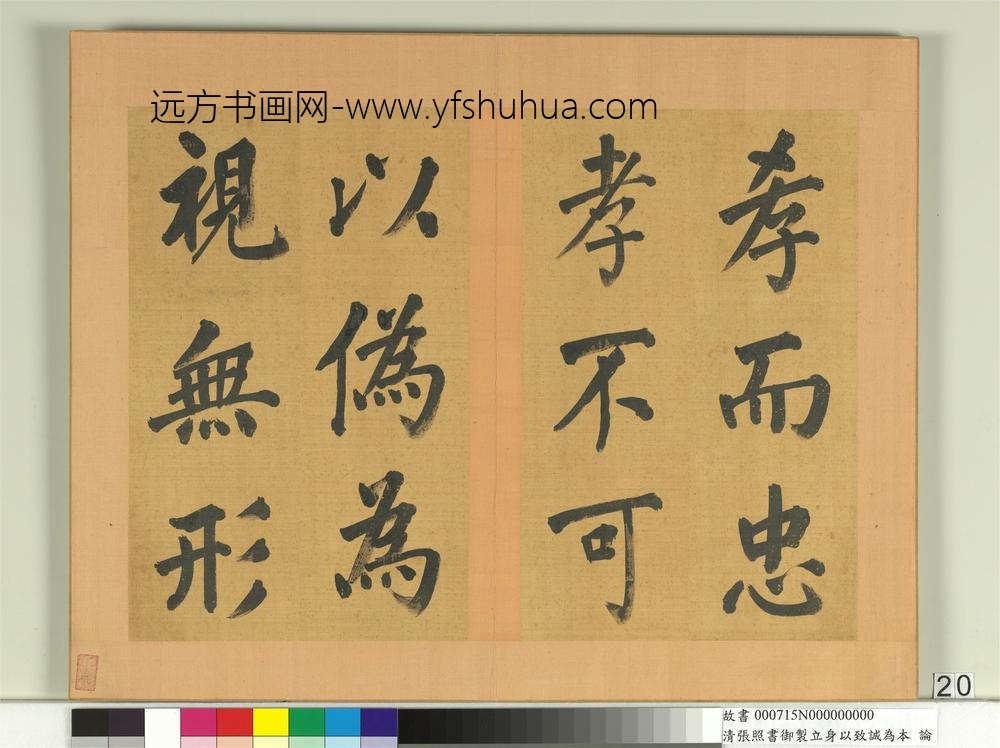 远方书画网-www.yfshuhua.com
孝而忠
孝不可
以僞為
視無形
20
故書 000715N000000000
清張照書御製立身以致誠為本 論